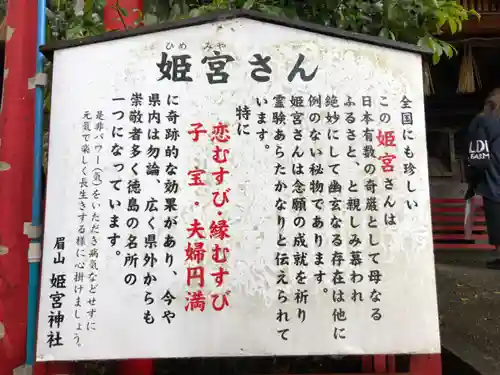 ひめ みや
姫宮さん
全国にも珍しい
この姫宮さんは
日本有数の奇厳として母なる
ふるさと、と親しみ慕われ
絶妙にして幽玄なる存在は他に
例のない秘物であります。
姫宮さんは念願の成就を祈り
霊験あらたかなりと伝えられて
います。
特に
恋むすび・縁むすび
子宝・夫婦円満
に奇跡的な効果があり、今や
県内は勿論、広く県外からも
崇敬者多く徳島の名所の
一つになっています。
是非パワー(気)をいただき病気などせずに
元気で楽しく長生きする様に心掛けましょう。
眉山 姫宮神社
LDI